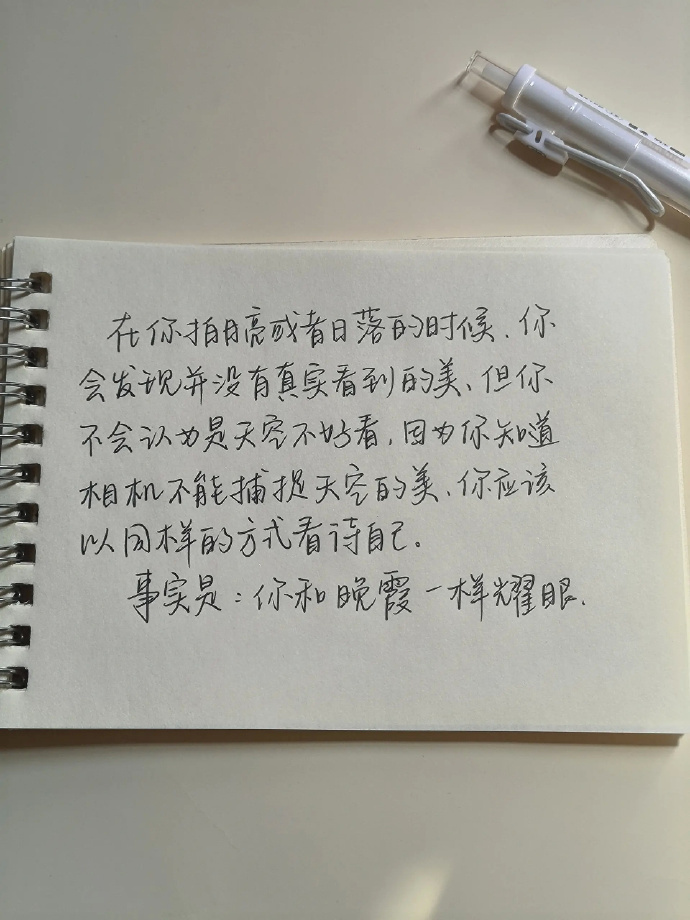 在你拍月亮或者日落的时候、你
会发现并没有真实看到的美、但你
不会认为是天空不好看，因为你知道
相机不能捕捉天空的美、你应该
以同样的方式看待自己。
事实是：你和晚霞一样耀眼.